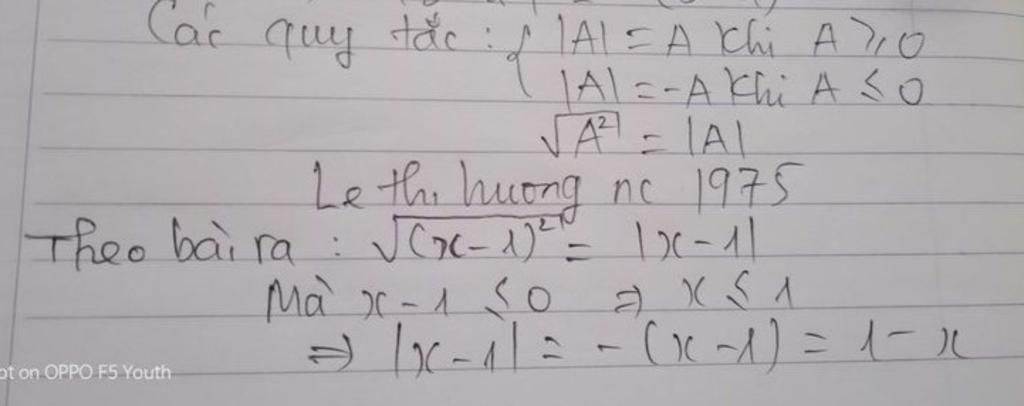 Các quy tắc : { |A| = A khi A ≥ 0
|A| = -A khi A ≤ 0
√A² = |A|
Le thi huong nc 1975
Theo bài ra : √(x-1)² = |x-1|
Mà x-1 ≤ 0 ⇒ x ≤ 1
⇒ |x-1| = -(x-1) = 1-x
ot on OPPO F5 Youth